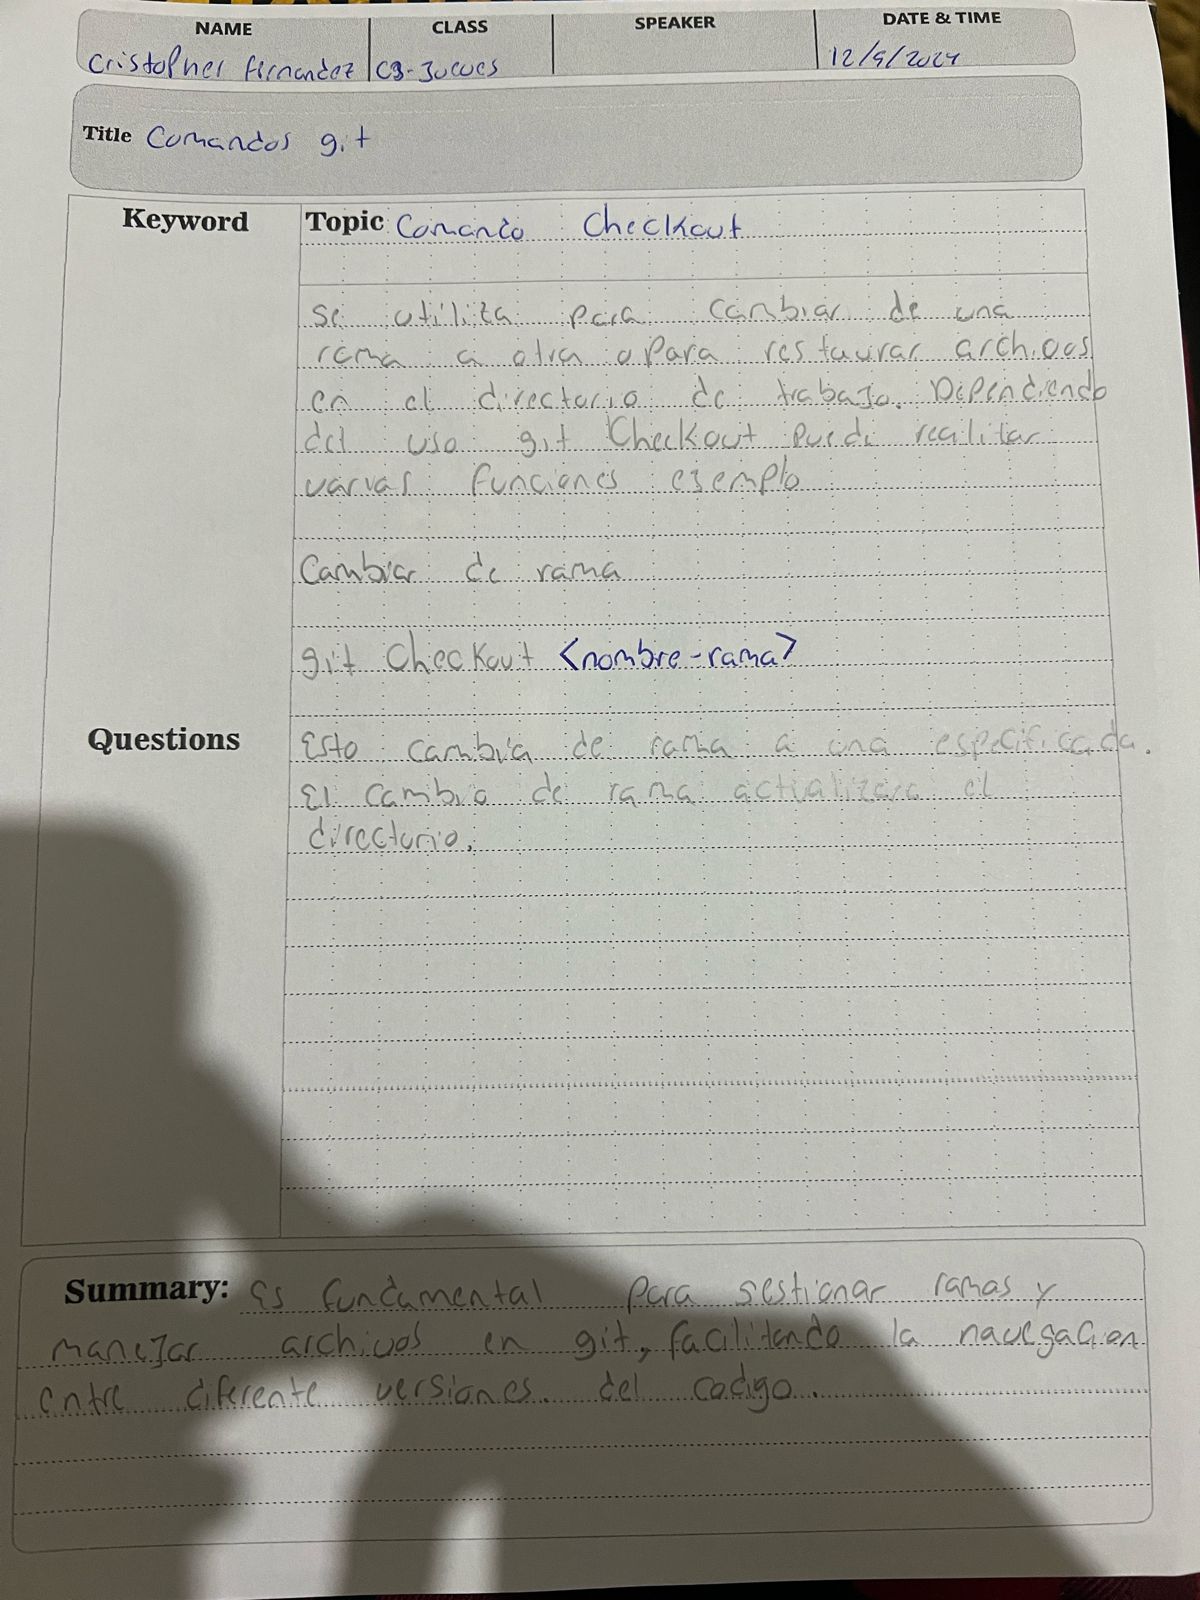 NAME CLASS SPEAKER DATE & TIME
Cristopher fernandez C3-Jueves 12/9/2024
Title Comandos git
Keyword Topic Comando Checkout
Se utiliza para cambiar de una
rama a otra o para restaurar archivos
en el directorio de trabajo. Dependiendo
del uso git Checkout puede realizar
varias funciones ejemplo
Cambiar de rama
git Checkout <nombre-rama>
Questions Esto cambia de rama a una especificada.
El cambio de rama actualizara el
directorio.
Summary: Es fundamental para gestionar ramas y
manejar archivos en git, facilitando la navegacion
entre diferente versiones del codigo.